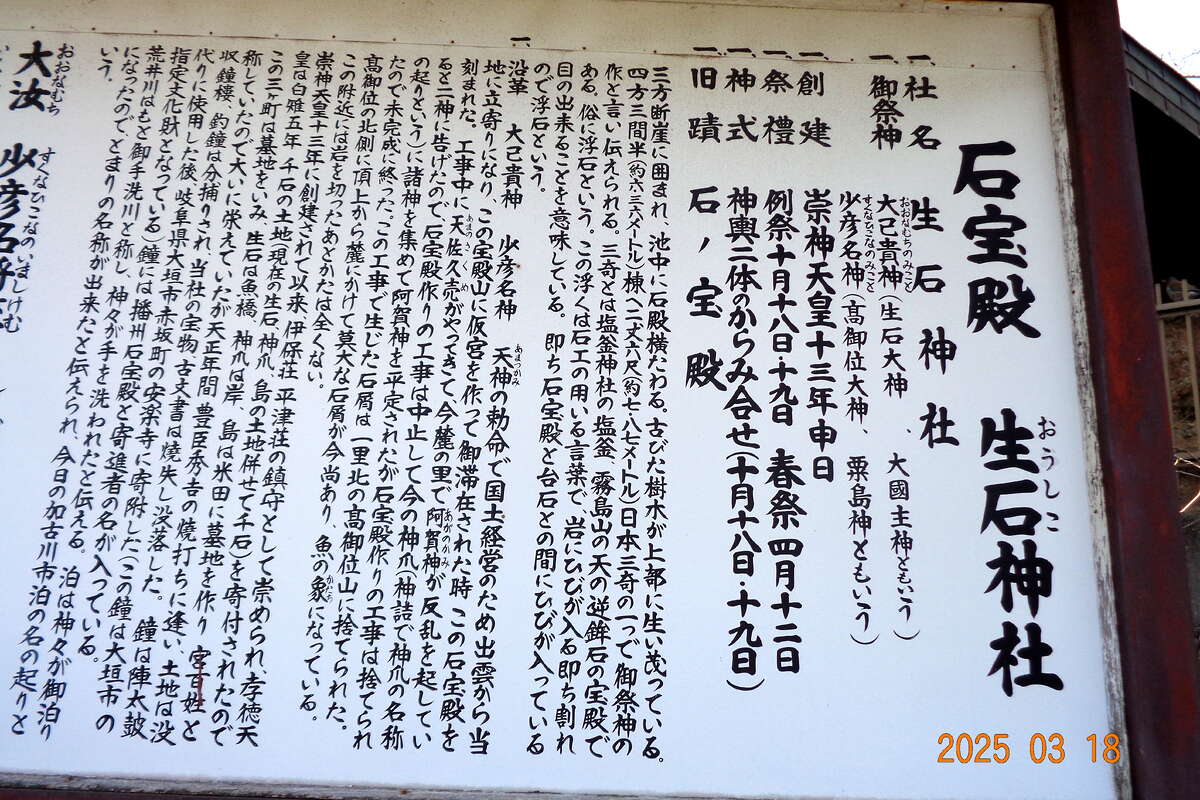 石宝殿 生石神社
おうしこ
一、社名 生石神社
一、御祭神 大己貴神(生石大神、大國主神ともいう)
おおなむちのみこと
少彦名神(髙御位大神、粟島神ともいう)
すくなひこなのみこと
一、創建 崇神天皇十三年申日
一、祭禮 例祭十月十八日・十九日 春祭四月十二日
一、神式 神輿二体のからみ合せ(十月十八日・十九日)
一、旧蹟 石ノ宝殿
三方断崖に囲まれ、池中に石殿横たわる。古びた樹木が上部に生い茂っている。
四方三間半(約六.三六メートル)棟へ二丈六尺(約七.八七メートル)日本三奇の一つで御祭神の
作と言い伝えられる。三奇とは塩釜神社の塩釜、霧島山の天の逆鉾石の宝殿で
ある。俗に浮石という。この浮くは石工の用いる言葉で、岩にひびが入る即ち割れ
目の出来ることを意味している。即ち石宝殿と台石との間にひびが入っている
ので浮石という。
一、沿革 大己貴神 少彦名神 天神の勅命で国土経営のため出雲から当
あまつかみ
地に立寄りになり、この宝殿山に仮宮を作って御滞在された時 この石宝殿を
刻まれた。工事中に天佐久売がやってきて、今麓の里で阿賀神が反乱を起してい
あまのさくめ
あがのかみ
ると二神に告げたので、石宝殿作りの工事は中止して今の神爪(神詰で神爪の名称
の起りという)に諸神を集めて阿賀神を平定されたが石宝殿作りの工事は捨てられ
たので未完成に終った。この工事で生じた石屑は一里北の髙御位山に捨てられた。
髙御位の北側に頂上から麓にかけて莫大な石屑が今尚あり、魚の象になっている。
かたち
この附近には岩を切ったあとかたは全くない。
崇神天皇十三年に創建されて以来、伊保荘 平津荘の鎮守として崇められ、孝徳天
皇は白雉五年 千石の土地(現在の生石、神爪、島の土地併せて千石)を寄付されたので
この三ヶ町は墓地をいみ、生石は魚橋、神爪は岸、島は米田に墓地を作り 宮百姓と
称していたので大いに栄えていたが天正年間 豊臣秀吉の焼打ちに逢い、土地は没
収 鐘楼、釣鐘は分捕りされ、当社の宝物 古文書は焼失し没落した。 鐘は陣太鼓
代りに使用した後、岐阜県大垣市赤坂町の安楽寺に寄附した(この鐘は大垣市の
指定文化財となっている)鐘には播州石宝殿と寄進者の名が入っている。
荒井川はもと御手洗川と称し、神々が手を洗われたと伝える。泊は神々が御泊り
になったので、とまりの名称が出来たと伝えられ、今日の加古川市泊の名の起りと
いう。
大汝 少彦名
おおなむち
すくなひこなのいましけむ
2025 03 18